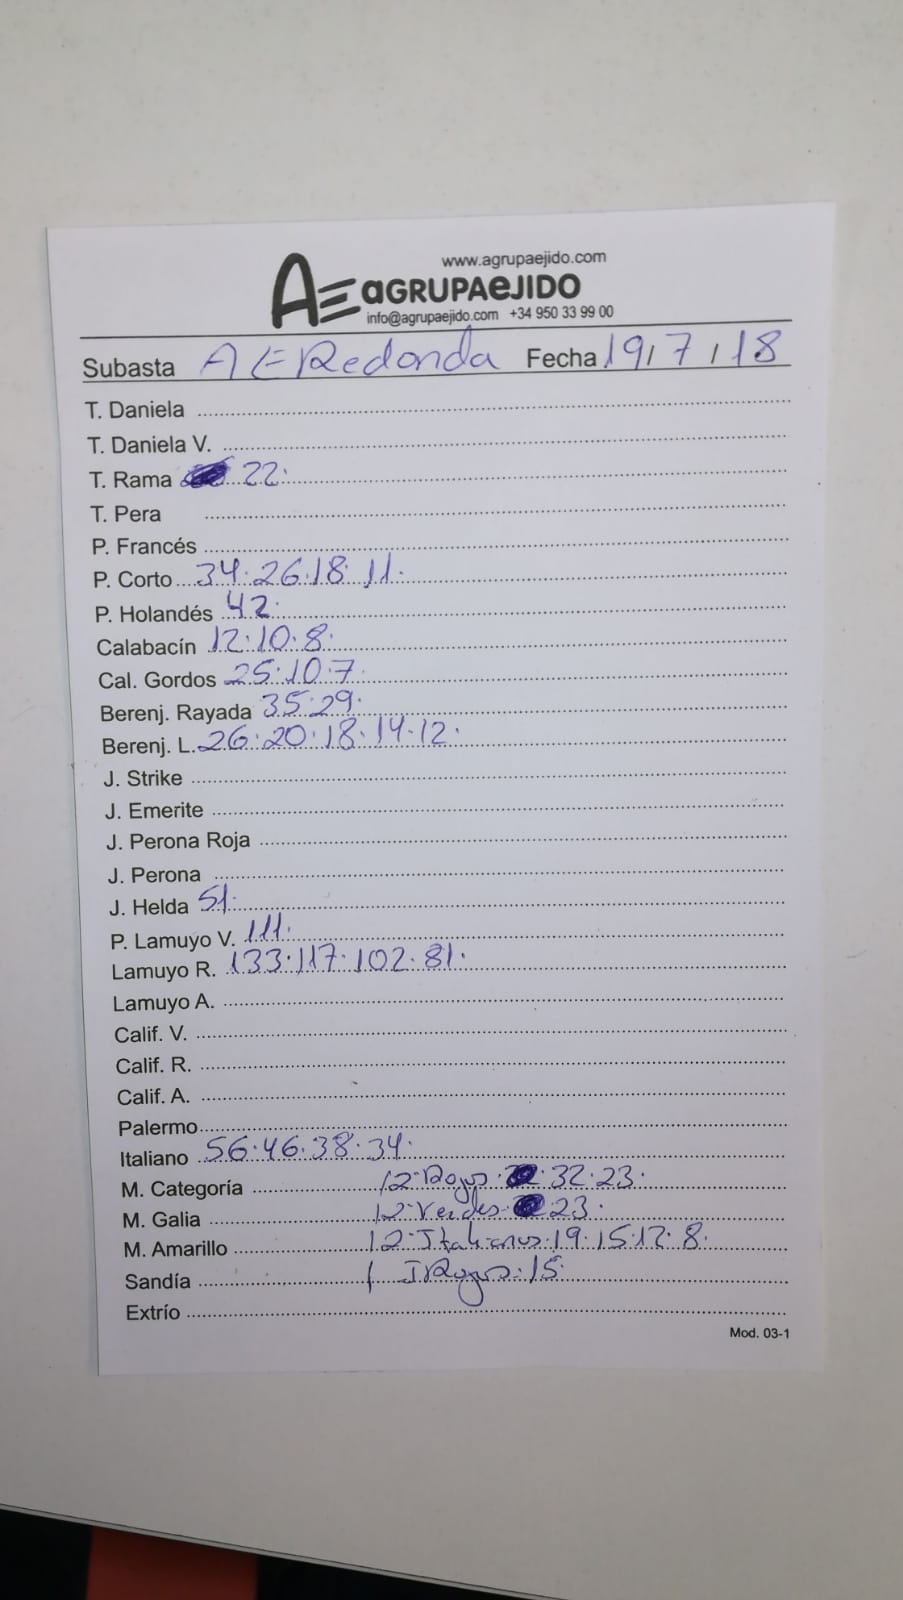 www.agrupaejido.com
AE aGRUPAeJIDO
info@agrupaejido.com +34 950 33 99 00
Subasta AE Redonda Fecha 19/7/18
T. Daniela
T. Daniela V.
T. Rama 22.
T. Pera
P. Francés
P. Corto 34.26.18.11.
P. Holandés 42.
Calabacín 12.10.8.
Cal. Gordos 25.10.7.
Berenj. Rayada 35.29.
Berenj. L. 26.20.18.14.12.
J. Strike
J. Emerite
J. Perona Roja
J. Perona
J. Helda 51.
P. Lamuyo V. 111.
Lamuyo R. 133.117.102.81.
Lamuyo A.
Calif. V.
Calif. R.
Calif. A.
Palermo
Italiano 56.46.38.34.
M. Categoría 12 Rojos. 32.23.
M. Galia 12 Verdes. 23.
M. Amarillo 12 Italianos. 19.15.12.8.
Sandía Rojos. 15.
Extrío
Mod. 03-1